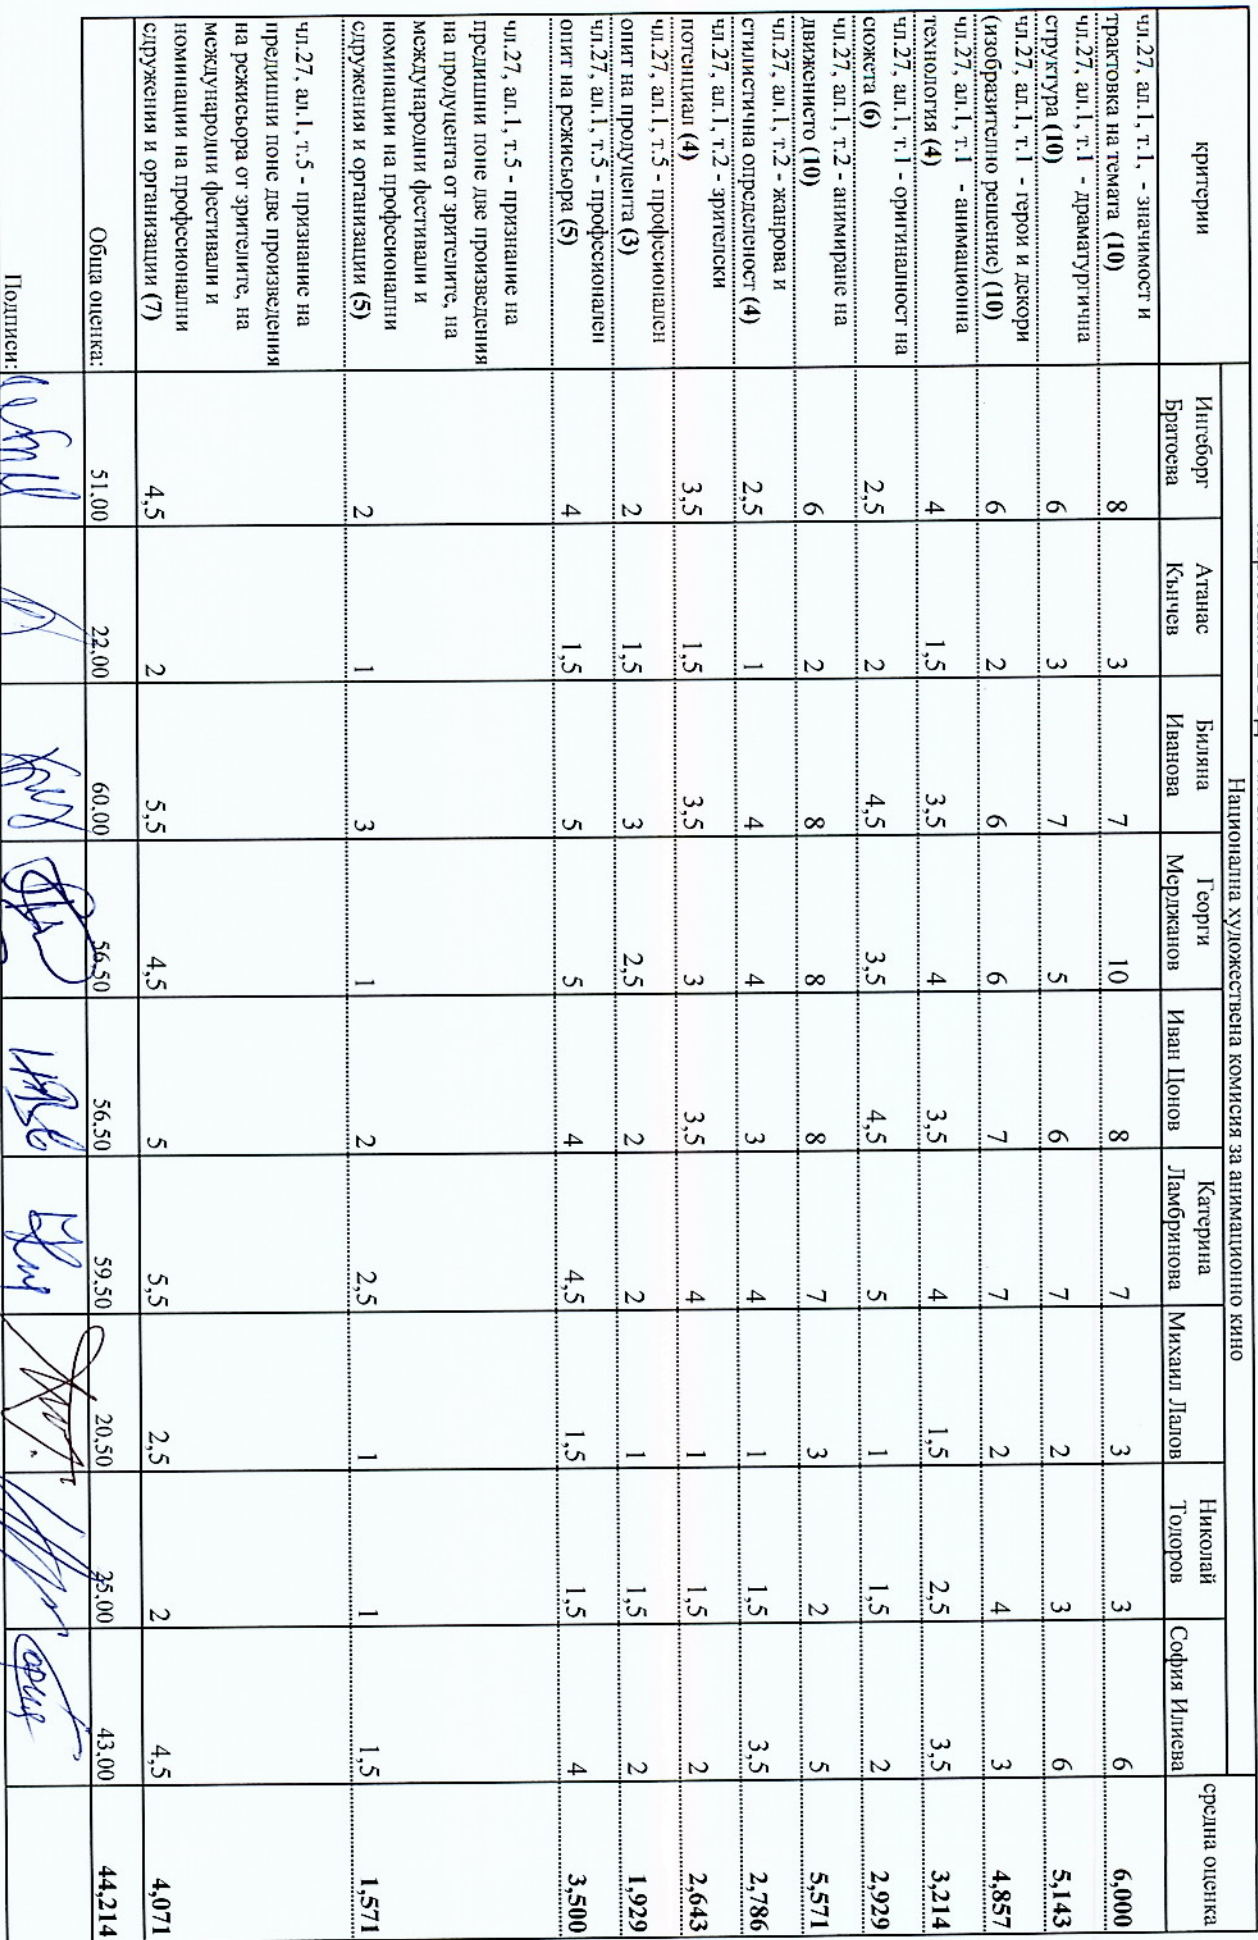 Национална художествена комисия за анимационно кино
критерии Ингеборг Братоева Атанас Кънчев Биляна Иванова Георги Мерджанов Иван Цонов Катерина Ламбринова Михаил Лалов Николай Тодоров София Илиева средна оценка
чл.27, ал.1, т.1, - значимост и
трактовка на темата (10) 8 3 7 10 8 7 3 3 6 6,000
чл.27, ал.1, т.1 - драматургична
структура (10) 6 3 7 5 6 7 2 3 6 5,143
чл.27, ал.1, т.1 - герои и декори
(изобразително решение) (10) 6 2 6 6 7 7 2 4 3 4,857
чл.27, ал.1, т.1 - анимационна
технология (4) 4 1,5 3,5 4 3,5 4 1,5 2,5 3,5 3,214
чл.27, ал.1, т.1 - оригиналност на
сюжета (6) 2,5 2 4,5 3,5 4,5 5 1 1,5 2 2,929
чл.27, ал.1, т.2 - анимиране на
движението (10) 6 2 8 8 8 7 3 2 5 5,571
чл.27, ал.1, т.2 - жанрова и
стилистична определеност (4) 2,5 1 4 4 3 4 1 1,5 3,5 2,786
чл.27, ал.1, т.2 - зрителски
потенциал (4) 3,5 1,5 3,5 3 3,5 4 1 1,5 2 2,643
чл.27, ал.1, т.5 - професионален
опит на продуцента (3) 2 1,5 3 2,5 2 2 1 1,5 2 1,929
чл.27, ал.1, т.5 - професионален
опит на режисьора (5) 4 1,5 5 5 4 4,5 1,5 1,5 4 3,500
чл.27, ал.1, т.5 - признание на
предишни поне две произведения
на продуцента от зрителите, на
международни фестивали и
номинации на професионални
сдружения и организации (5) 2 1 3 1 2 2,5 1 1 1,5 1,571
чл.27, ал.1, т.5 - признание на
предишни поне две произведения
на режисьора от зрителите, на
международни фестивали и
номинации на професионални
сдружения и организации (7) 4,5 2 5,5 4,5 5 5,5 2,5 2 4,5 4,071
Обща оценка: 51,00 22,00 60,00 56,50 56,50 59,50 20,50 25,00 43,00 44,214
Подписи: